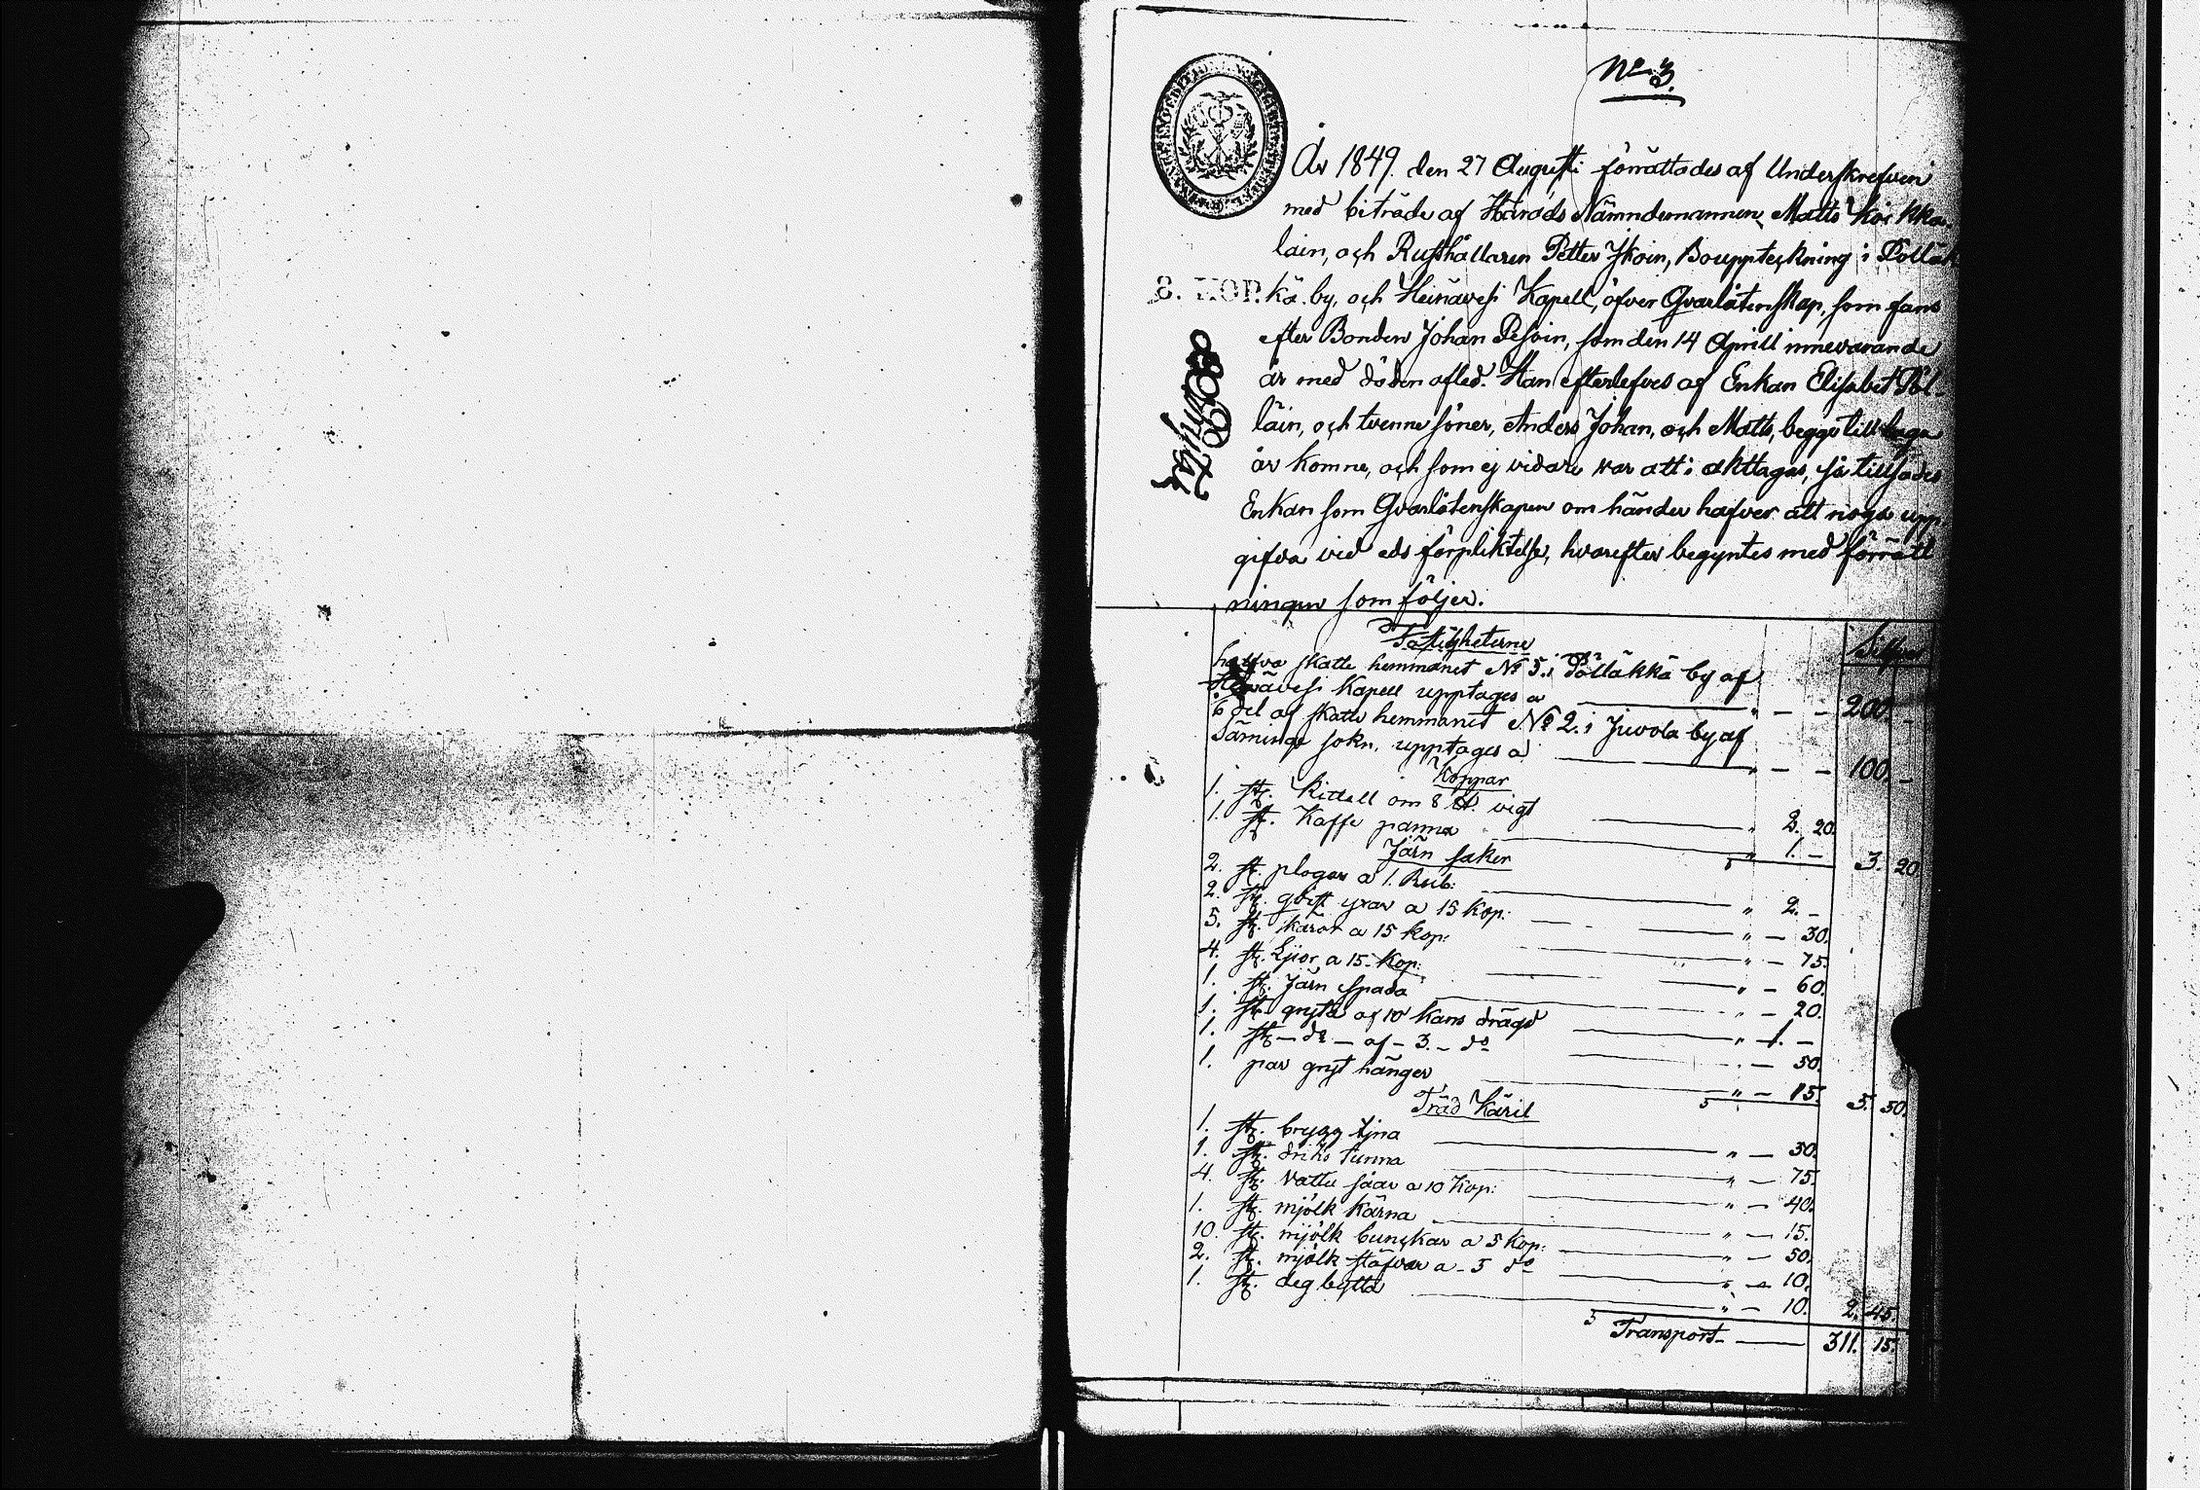 No 3.
År 1849. den 27 Augusti förrättades af Underskrefven
med biträde af Härads Nämndemannen Matts Kokka-
lain, och Rusthållaren Petter Ikoin, Bouppteckning i Pölläk
8. KOP. kä by, och Heinävesi Kapell, öfver Qvarlåtenskap, som fans
efter Bonden Johan Pesoin, som den 14 Aprill innevarande
år med döden afled. Han efterlefves af Enkan Elisabet Pöl-
läin, och tvenne söner, Anders Johan, och Matts, begge till laga
år komne, och som ej vidare var att i akttagas, så tillsades
Enkan som Qvarlåtenskapen om händer hafver att noga upp
gifva vid eds förpliktelse, hvarefter begyntes med förrätt
ningen som följer.
Fastigheterne Silfver
halfva skatte hemmanet No 5. i Pölläkkä by af
Heinävesi Kapell upptages a " — — 200. —
6 del af skatte hemmanet No 2. i Juvola by af
Säminge sokn. upptages a " — — 100. —
Koppar
1. st. Kittell om 8 ℔. vigt " 2. 20.
1. st. Kaffe panna " 1. — 3. 20.
Järn saker
2. st. plogar a 1. Rub: " 2. —
2. st. qvist yxar a 15 Kop: " — 30.
5. st. skäror a 15 kop: " — 75.
4. st. Ljior a 15 Kop: " — 60.
1. st. Järn spada " — 20.
1. st. gryta af 10 kans drägd " 1. —
1. st — do — af — 3. — do " — 50.
1. par gryt hänger " — 15. 5. 50.
Träd Käril
1. st. brygg tjna " — 30.
1. st. driks tunna " — 75.
4. st. vattu såar a 10 Kop: " — 40.
1. st. mjölk kärna " — 15.
10. st. mjölk bunckar a 5 Kop: " — 50.
2. st. mjölk stäfvor a — 5 do " — 10.
1. st. deg bytta " — 10. 2. 45.
Transport — 311. 15.